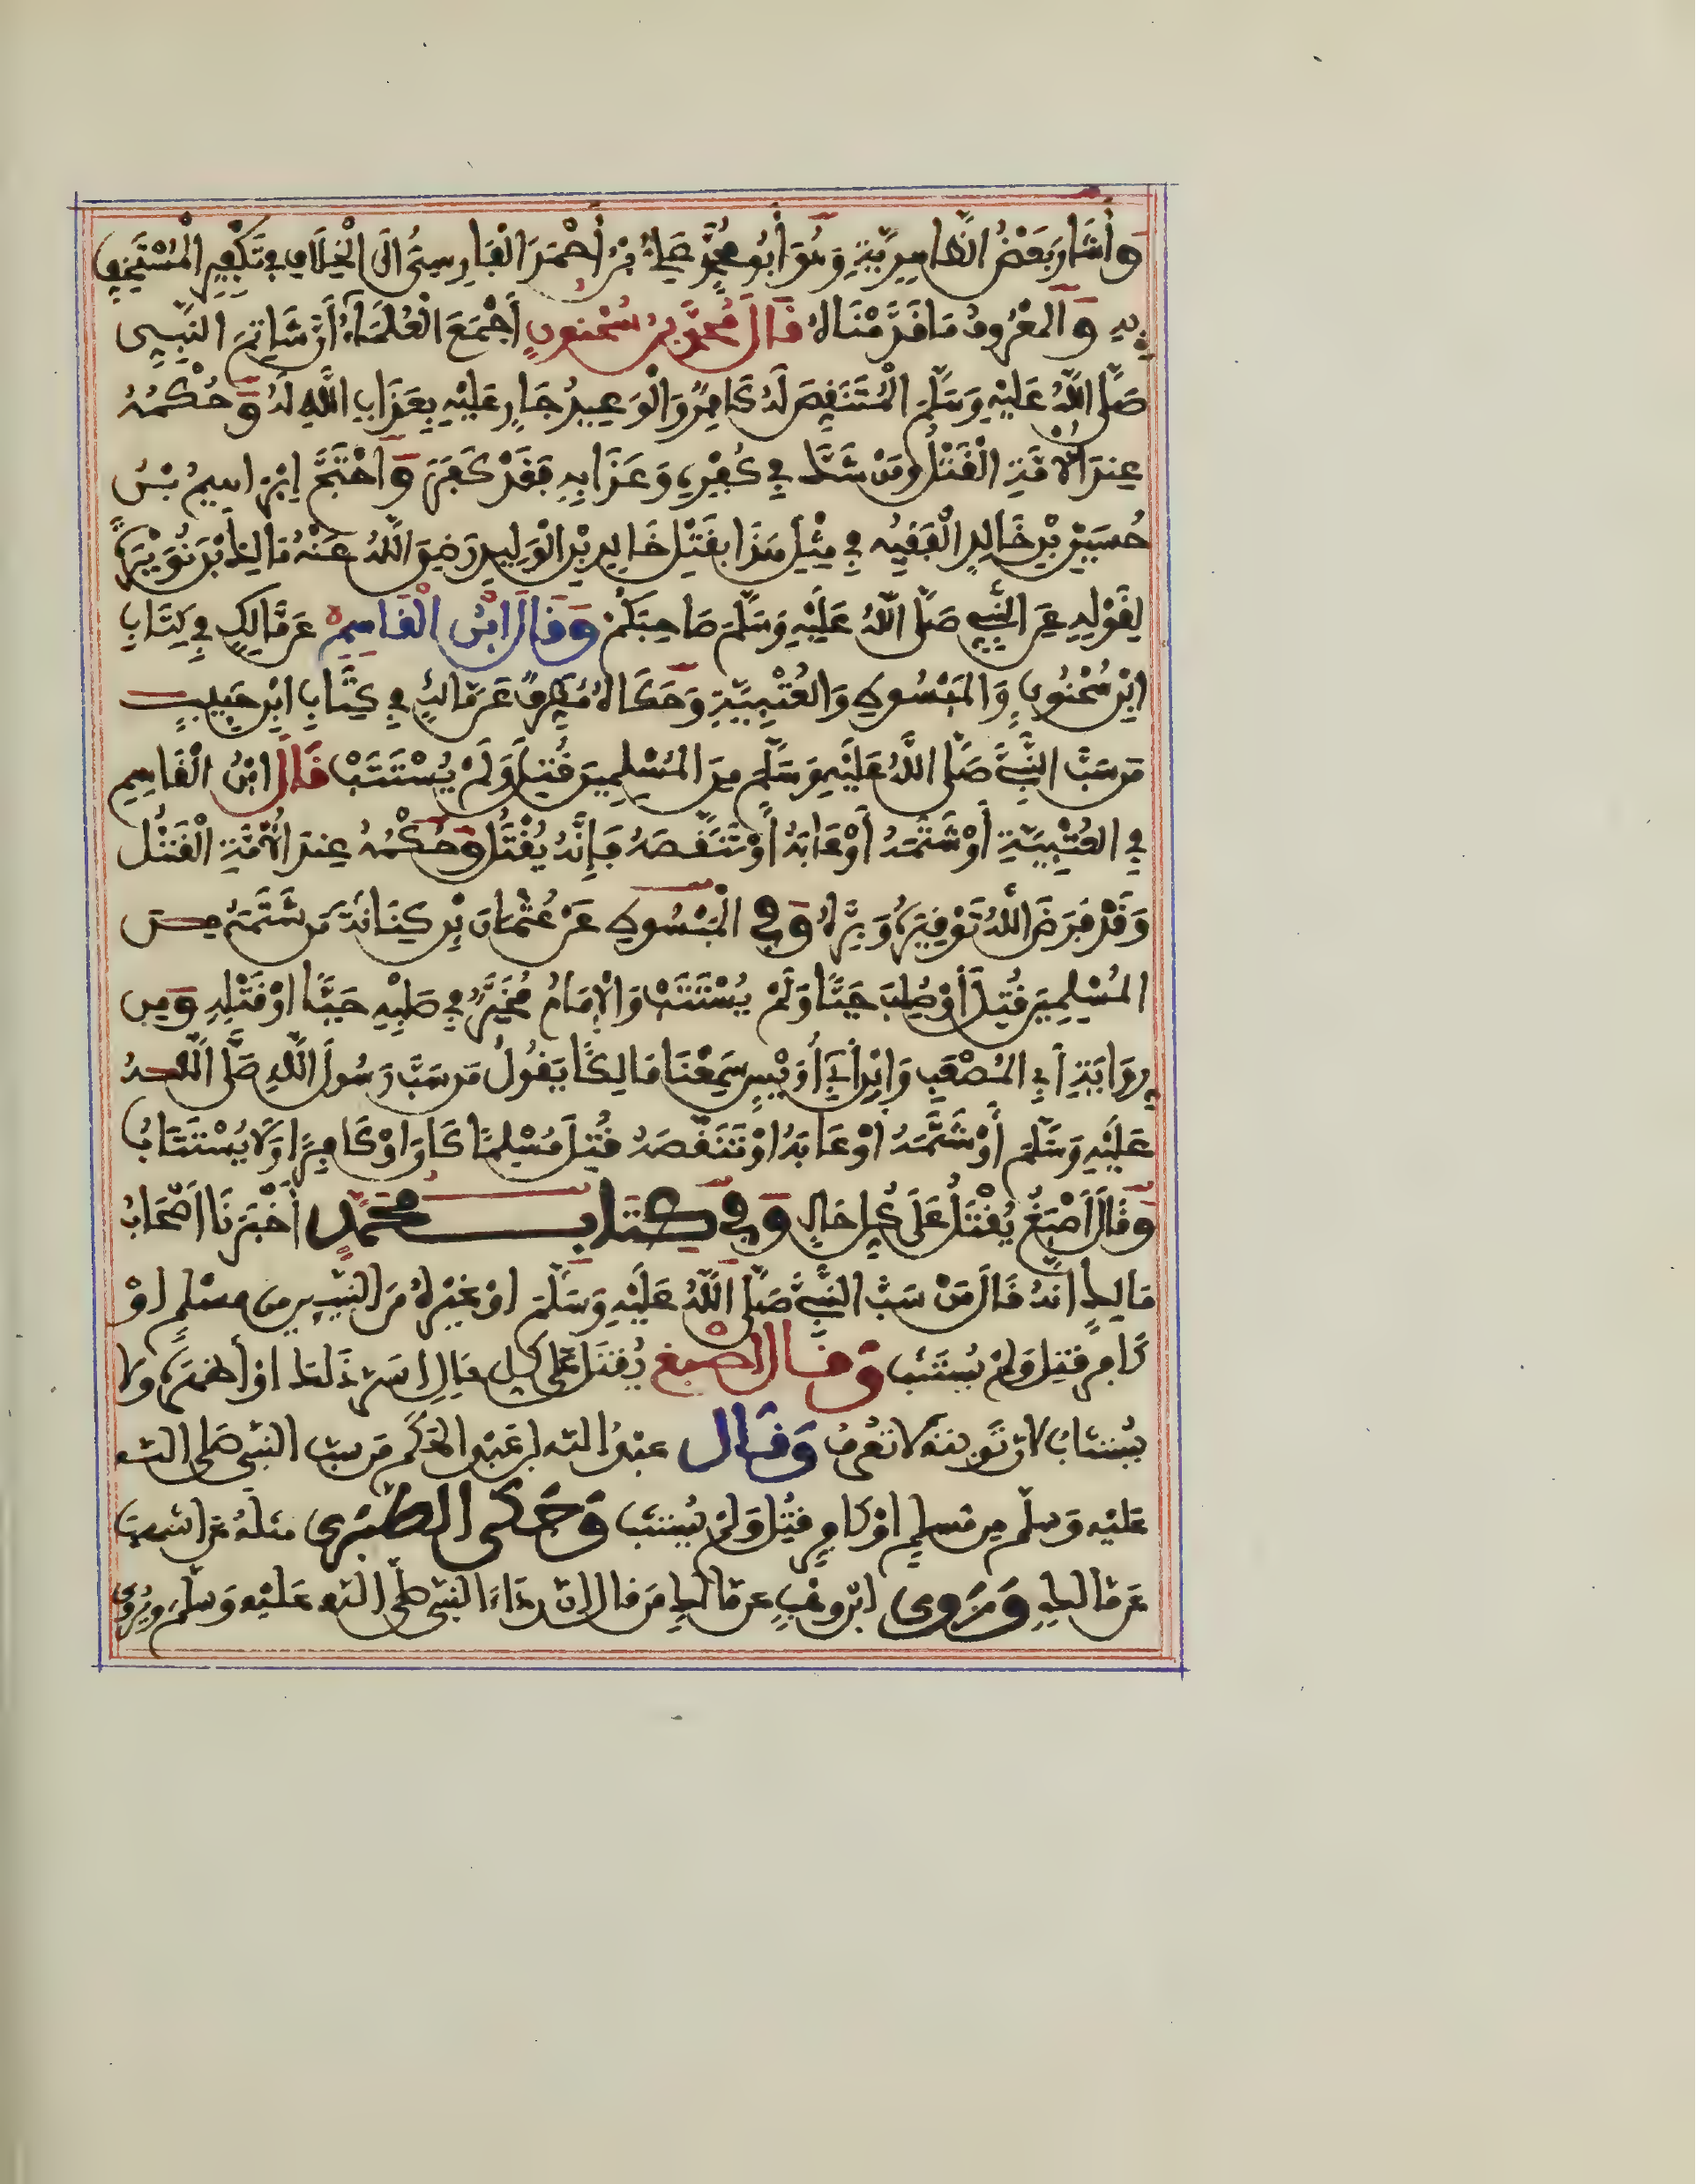 وَأَشَارَ بَعْضُ الظَّاهِرِيَّةِ وَهُوَ أَبُو مُحَمَّدٍ عَلِيُّ بْنُ أَحْمَدَ الْفَارِسِيُّ إِلَى الْخِلَافِ فِي تَكْفِيرِ الْمُسْتَخِفِّ
بِهِ وَالْمَعْرُوفُ مَا قَدَّمْنَاهُ قَالَ مُحَمَّدُ بْنُ سُحْنُونٍ أَجْمَعَ الْعُلَمَاءُ أَنَّ شَاتِمَ النَّبِيِّ
صَلَّى اللَّهُ عَلَيْهِ وَسَلَّمَ الْمُتَنَقِّصَ لَهُ كَافِرٌ وَالْوَعِيدُ جَارٍ عَلَيْهِ بِعَذَابِ اللَّهِ لَهُ وَحُكْمُهُ
عِنْدَ الْأُمَّةِ الْقَتْلُ وَمَنْ شَكَّ فِي كُفْرِهِ وَعَذَابِهِ فَقَدْ كَفَرَ وَاحْتَجَّ إِبْرَاهِيمُ بْنُ
حُسَيْنِ بْنِ خَالِدٍ الْفَقِيهُ فِي مِثْلِ هَذَا بِقَتْلِ خَالِدِ بْنِ الْوَلِيدِ رَضِيَ اللَّهُ عَنْهُ مَالِكَ بْنَ نُوَيْرَةَ
لِقَوْلِهِ عَنِ النَّبِيِّ صَلَّى اللَّهُ عَلَيْهِ وَسَلَّمَ صَاحِبُكُمْ وَقَالَ ابْنُ الْقَاسِمِ عَنْ مَالِكٍ فِي كِتَابِ
ابْنِ سُحْنُونٍ وَالْمَبْسُوطِ وَالْعُتْبِيَّةِ وَحَكَاهُ مُطَرِّفٌ عَنْ مَالِكٍ فِي كِتَابِ ابْنِ حَبِيبٍ
مَنْ سَبَّ النَّبِيَّ صَلَّى اللَّهُ عَلَيْهِ وَسَلَّمَ مِنَ الْمُسْلِمِينَ قُتِلَ وَلَمْ يُسْتَتَبْ قَالَ ابْنُ الْقَاسِمِ
فِي الْعُتْبِيَّةِ أَوْ شَتَمَهُ أَوْ عَابَهُ أَوْ تَنَقَّصَهُ فَإِنَّهُ يُقْتَلُ وَحُكْمُهُ عِنْدَ الْأُمَّةِ الْقَتْلُ
وَقَدْ فَرَضَ اللَّهُ تَوْقِيرَهُ وَبِرَّهُ وَفِي الْمَبْسُوطِ عَنْ عُثْمَانَ بْنِ كِنَانَةَ مَنْ شَتَمَهُ مِنَ
الْمُسْلِمِينَ قُتِلَ أَوْ صُلِبَ حَيًّا وَلَمْ يُسْتَتَبْ وَالْإِمَامُ مُخَيَّرٌ فِي صَلْبِهِ حَيًّا أَوْ قَتْلِهِ وَمِن
رِوَايَةِ أَبِي الْمُصْعَبِ وَابْنِ أَبِي أُوَيْسٍ سَمِعْنَا مَالِكًا يَقُولُ مَنْ سَبَّ رَسُولَ اللَّهِ صَلَّى اللَّهُ
عَلَيْهِ وَسَلَّمَ أَوْ شَتَمَهُ أَوْ عَابَهُ أَوْ تَنَقَّصَهُ قُتِلَ مُسْلِمًا كَانَ أَوْ كَافِرًا وَلَا يُسْتَتَابُ
وَقَالَ أَصْبَغُ يُقْتَلُ عَلَى كُلِّ حَالٍ وَفِي كِتَابِ مُحَمَّدٍ أَخْبَرَنَا أَصْحَابُ
مَالِكٍ أَنَّهُ قَالَ مَنْ سَبَّ النَّبِيَّ صَلَّى اللَّهُ عَلَيْهِ وَسَلَّمَ أَوْ غَيْرَهُ مِنَ النَّبِيِّينَ مِنْ مُسْلِمٍ أَوْ
كَافِرٍ قُتِلَ وَلَمْ يُسْتَتَبْ وَقَالَ أَصْبَغُ يُقْتَلُ عَلَى كُلِّ حَالٍ أَسَرَّ ذَلِكَ أَوْ أَظْهَرَهُ وَلَا
يُسْتَتَابُ لِأَنَّ تَوْبَتَهُ لَا تُعْرَفُ وَقَالَ عَبْدُ اللَّهِ بْنُ عَبْدِ الْحَكَمِ مَنْ سَبَّ النَّبِيَّ صَلَّى اللَّهُ
عَلَيْهِ وَسَلَّمَ مِنْ مُسْلِمٍ أَوْ كَافِرٍ قُتِلَ وَلَمْ يُسْتَتَبْ وَحَكَى الطَّبَرِيُّ مِثْلَهُ عَنْ أَشْهَبَ
عَنْ مَالِكٍ وَرَوَى ابْنُ وَهْبٍ عَنْ مَالِكٍ مَنْ قَالَ إِنَّ رِدَاءَ النَّبِيِّ صَلَّى اللَّهُ عَلَيْهِ وَسَلَّمَ وَيُرْوَى